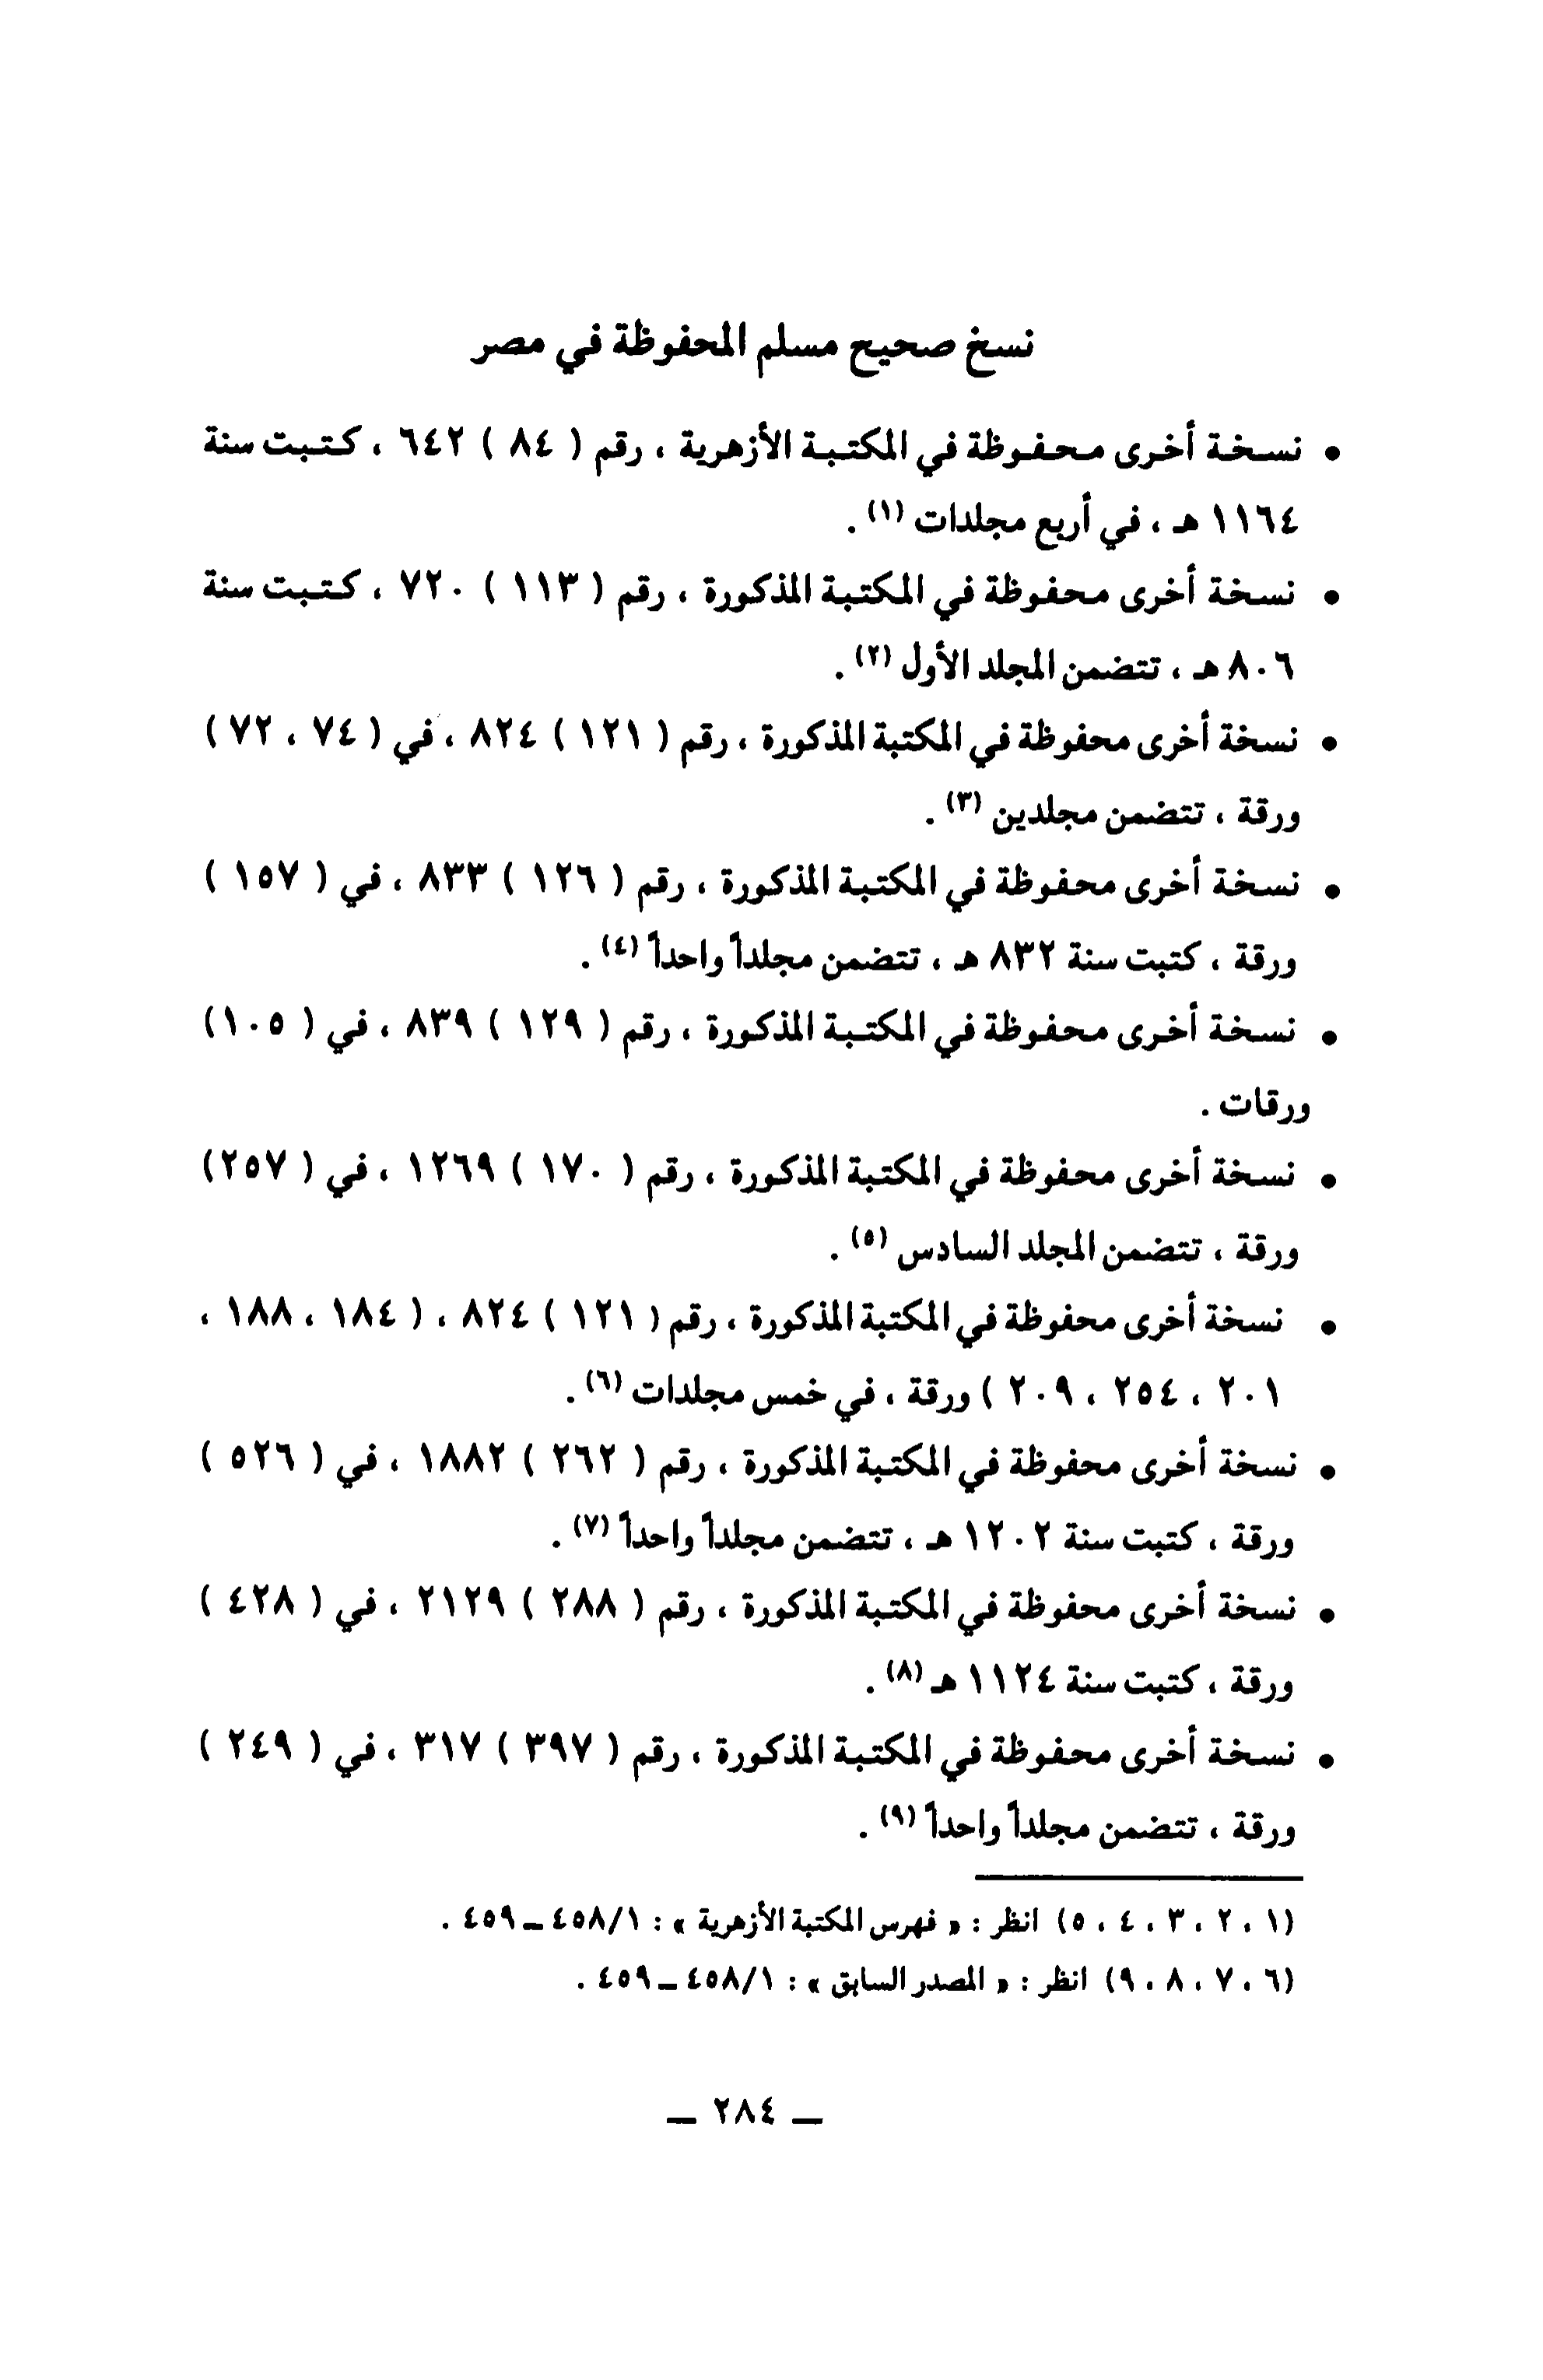 نسخ صحيح مسلم المحفوظة في مصر
• نسخة أخرى محفوظة في المكتبة الأزهرية ، رقم ( ٨٤ ) ٦٤٢ ، كتبت سنة
١١٦٤ هـ ، في أربع مجلدات (١) .
• نسخة أخرى محفوظة في المكتبة المذكورة ، رقم ( ١١٣ ) ٧٢٠ ، كتبت سنة
٨٠٦ هـ ، تتضمن المجلد الأول (٢) .
• نسخة أخرى محفوظة في المكتبة المذكورة ، رقم ( ١٢١ ) ٨٢٤ ، في ( ٧٤ ، ٧٢ )
ورقة ، تتضمن مجلدين (٣) .
• نسخة أخرى محفوظة في المكتبة المذكورة ، رقم ( ١٢٦ ) ٨٣٣ ، في ( ١٥٧ )
ورقة ، كتبت سنة ٨٣٢ هـ ، تتضمن مجلداً واحداً (٤) .
• نسخة أخرى محفوظة في المكتبة المذكورة ، رقم ( ١٢٩ ) ٨٣٩ ، في ( ١٠٥ )
ورقات .
• نسخة أخرى محفوظة في المكتبة المذكورة ، رقم ( ١٧٠ ) ١٢٦٩ ، في ( ٢٥٧ )
ورقة ، تتضمن المجلد السادس (٥) .
• نسخة أخرى محفوظة في المكتبة المذكورة ، رقم ( ١٢١ ) ٨٢٤ ، ( ١٨٤ ، ١٨٨ ،
٢٠١ ، ٢٥٤ ، ٢٠٩ ) ورقة ، في خمس مجلدات (٦) .
• نسخة أخرى محفوظة في المكتبة المذكورة ، رقم ( ٢٦٢ ) ١٨٨٢ ، في ( ٥٢٦ )
ورقة ، كتبت سنة ١٢٠٢ هـ ، تتضمن مجلداً واحداً (٧) .
• نسخة أخرى محفوظة في المكتبة المذكورة ، رقم ( ٢٨٨ ) ٢١٢٩ ، في ( ٤٢٨ )
ورقة ، كتبت سنة ١١٢٤ هـ (٨) .
• نسخة أخرى محفوظة في المكتبة المذكورة ، رقم ( ٣٩٧ ) ٣١٧ ، في ( ٢٤٩ )
ورقة ، تتضمن مجلداً واحداً (٩) .
(١ ، ٢ ، ٣ ، ٤ ، ٥) انظر : « فهرس المكتبة الأزهرية » : ٤٥٨/١ ــ ٤٥٩ .
(٦ ، ٧ ، ٨ ، ٩) انظر : « المصدر السابق » : ٤٥٨/١ ــ ٤٥٩ .
ــ ٢٨٤ ــ